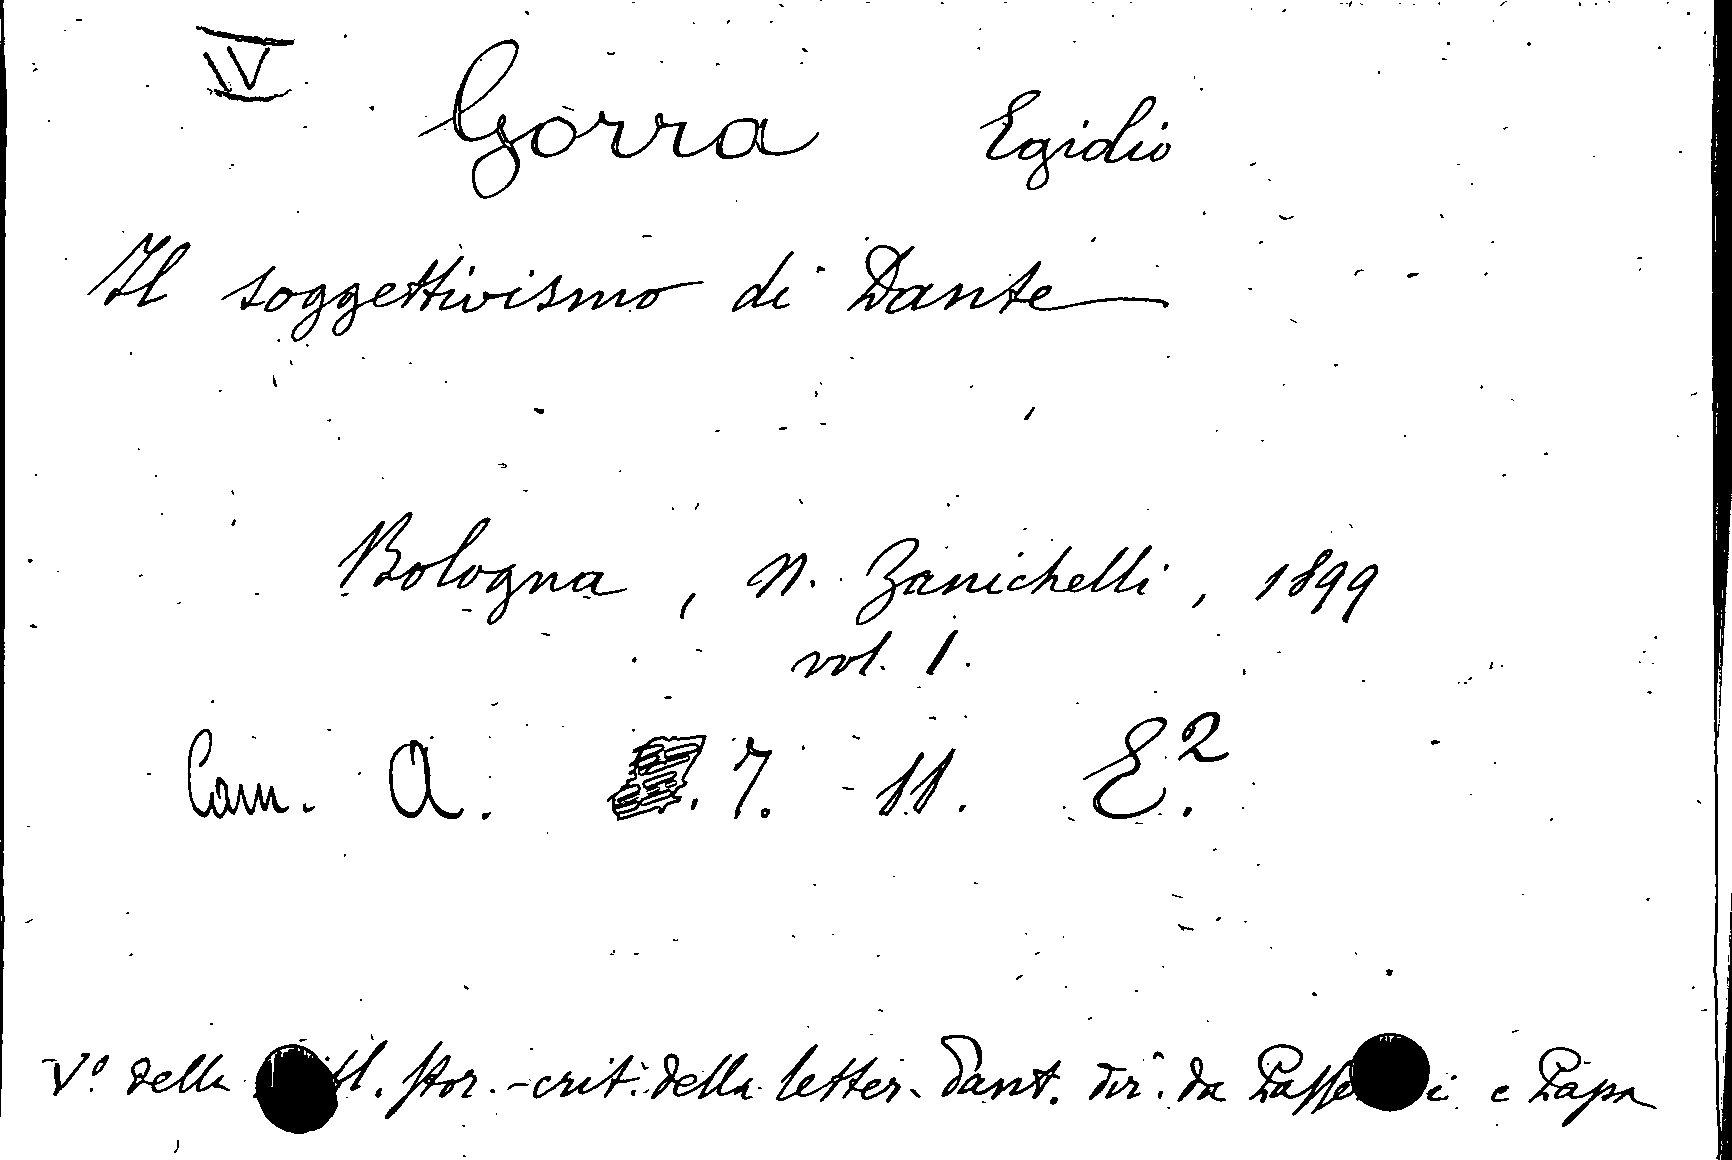 IV
Gorra Egidio
Il soggettivismo di Dante
Bologna, N. Zanichelli, 1899
vol. 1.
Cam. A. . 7. - 11. E.²
V.º della stor.-crit. della letter. dant. dir. da e Papa